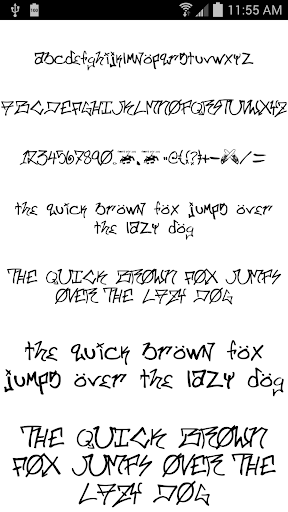 11:55 AM
abcdefghijklmnöpqrstuvwxyz
ABCDEFGHIJKLMNØPQRSTUVWXYZ
1234567890
the quick brown föx jumps över
the lazy dög
THE QUICK BRØWN FØX JUMPS
ØVER THE LAZY DØG
the quick bröwn föx
jumps över the lazy dög
THE QUICK BRØWN
FØX JUMPS ØVER THE
LAZY DØG